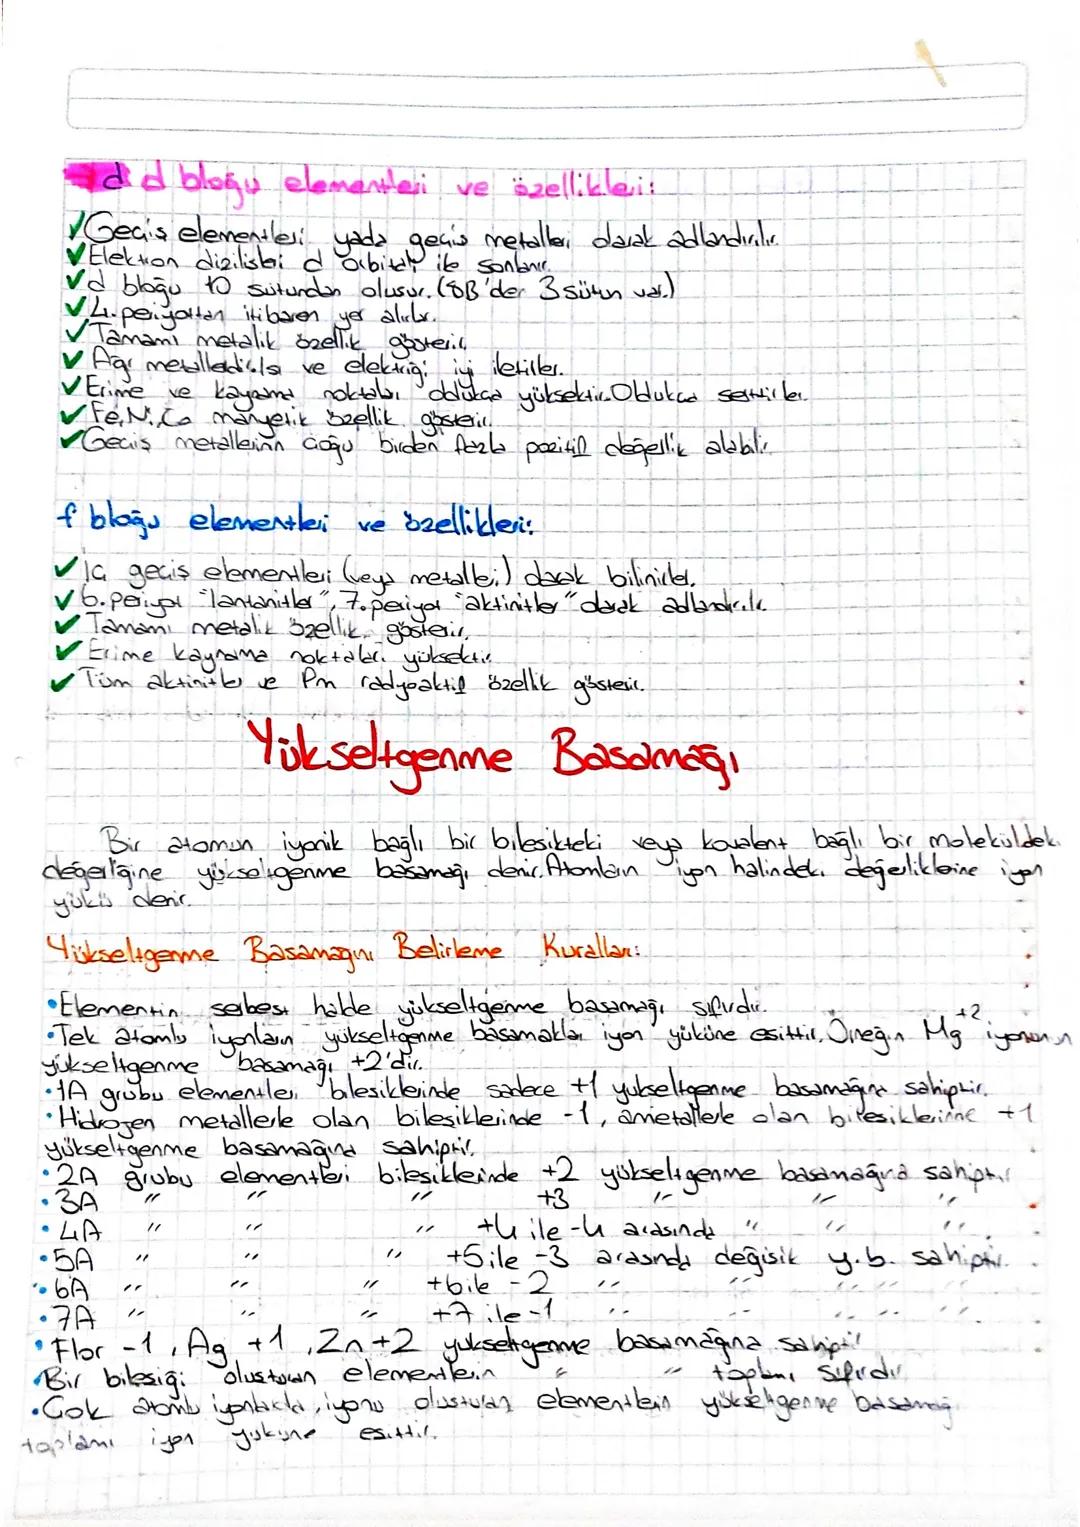 d d bloğu elementleri ve özellikleri:
Geçiş elementleri yada geçiş metalleri olarak adlandırılır.
Elektron dizilişleri d orbitali ile sonlanır.
d bloğu 10 sütundan oluşur. (8B'der 3 sütun var.)
4. periyottan itibaren yer alırlar.
Tamamı metalik özellik gösterir.
Ağır metallerdir. Isı ve elektriği iyi iletirler.
Erime ve kaynama noktaları oldukça yüksektir. Oldukça serttirler.
Fe, Ni, Co manyetik özellik gösterir.
Geçiş metallerinin çoğu birden fazla pozitif değerlik alabilir.
f bloğu elementleri ve özellikleri:
İç geçiş elementleri (veya metalleri) olarak bilinirler.
6. periyot "lantanitler", 7. periyot "aktinitler" olarak adlandırılır.
Tamamı metalik özellik gösterir.
Erime kaynama noktaları yüksektir.
Tüm aktinitler ve Pm radyoaktif özellik gösterir.
Yükseltgenme Basamağı
Bir atomun iyonik bağlı bir bileşikteki veya kovalent bağlı bir moleküldeki
değerliğine yükseltgenme basamağı denir. Atomların iyon halindeki değerliklerine iyon
yükü denir.
Yükseltgenme Basamağını Belirleme Kuralları:
• Elementin serbest halde yükseltgenme basamağı sıfırdır.
• Tek atomlu iyonların yükseltgenme basamakları iyon yüküne eşittir. Örneğin Mg⁺² iyonunun
yükseltgenme basamağı +2'dir.
• 1A grubu elementleri bileşiklerinde sadece +1 yükseltgenme basamağına sahiptir.
• Hidrojen metallerle olan bileşiklerinde -1, ametallerle olan bileşiklerinne +1
yükseltgenme basamağına sahiptir.
• 2A grubu elementleri bileşiklerinde +2 yükseltgenme basamağına sahiptir
• 3A " " " +3 " " "
• 4A " " " +4 ile -4 arasında " " "
• 5A " " " +5 ile -3 arasında değişik y.b. sahiptir.
• 6A " " " +6 ile -2 " " " "
• 7A " " " +7 ile -1 " " " "
• Flor -1, Ag +1, Zn +2 yükseltgenme basamağına sahiptir
• Bir bileşiği oluşturan elementlerin " " toplamı sıfırdır
• Çok atomlu iyonlarda, iyonu oluşturan elementlerin yükseltgenme basamağı
toplamı iyon yüküne eşittir.